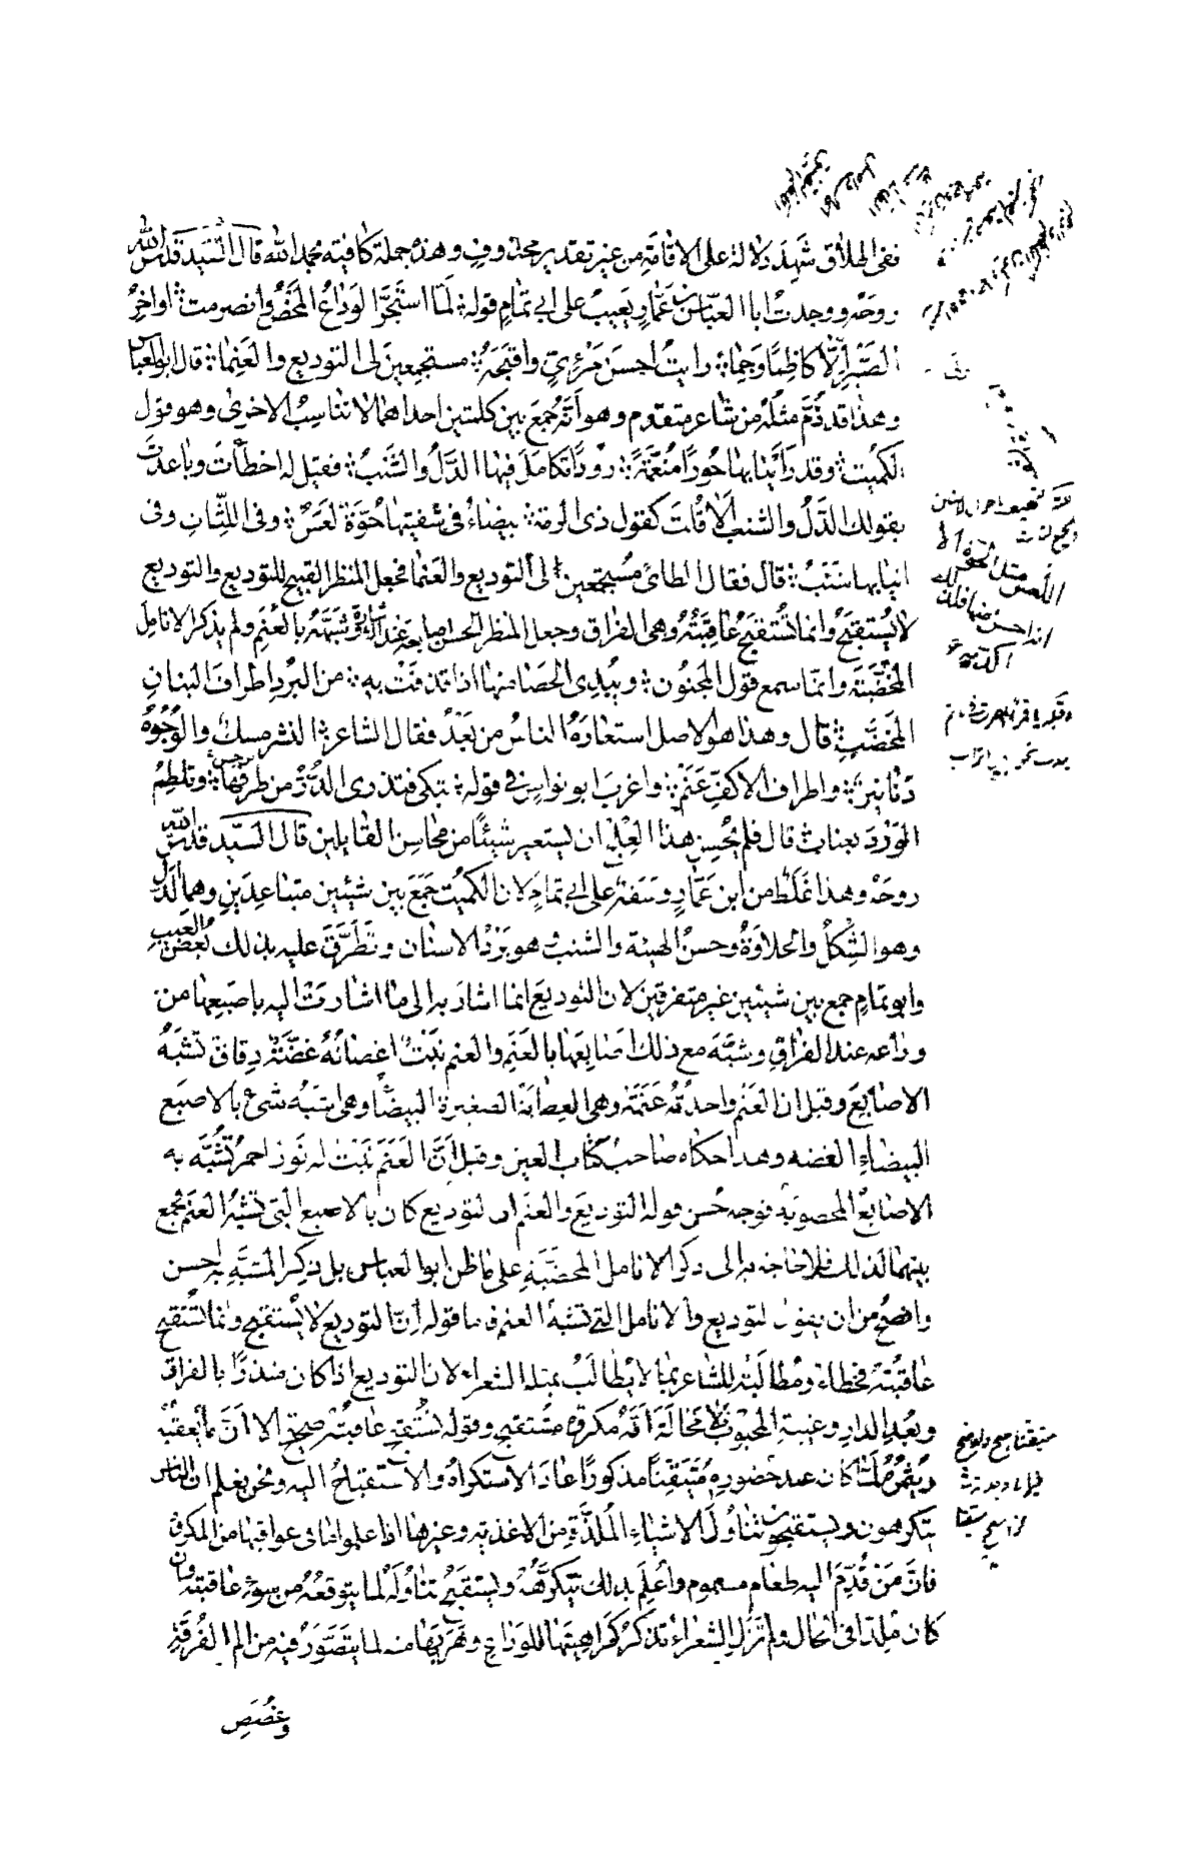 ففى اطلاق شهد دلالة على الاقامة من غير تقدير محذوف وهذه جملة كافية بحمد الله قال السيد قدس الله
روحه ووجدت ابا العباس بن عمار يعيب على ابى تمام قوله لما استحر الوداع المحض وانصرمت اواخر
الصبر الا كاظما وجما رايت احسن مرئي واقبحه مستجمعين لى التوديع والعنما قال ابو العباس
وهذا قد ذم مثله من شاعر متقدم وهو انه جمع بين كلمتين احداهما لا تناسب الاخرى وهو قول
الكميت وقد رأينا بها حورا منعمة رودا تكامل فيها الدل والشنب فقيل له اخطأت وباعدت
بقولك الدل والشنب الا قلت كقول ذى الرمة بيضاء فى شفتيها حوة لعس وفى اللثات وفى
انيابها شنب قال فقال الطائى مستجمعين لى التوديع والعنما فجعل المنظر القبيح للتوديع والتوديع
لا يستقبح وانما تستقبح عاقبته وهى الفراق وجعل المنظر الحسن اصابعه عند اشارة وشبهه بالعنم ولم يذكر الانامل
المخضبة وانما سمع قول المجنون ويبدى الحصا منها اذا قذفت به من البرد اطراف البنان
المخضب قال وهذا هو الاصل استعاره الناس من بعد فقال الشاعر النشر مسك والوجوه
دنانير واطراف الاكف عنم واغرب ابو نواس فى قوله تبكى فتذرى الدر من طرفها وتلطم
الورد بعناب قال فلم يحسن هذا العلج ان يستعير شيئا من محاسن القايلين قال السيد قدس الله
روحه وهذا غلط من ابن عمار وسفه على ابى تمام لان الكميت جمع بين شيئين متباعدين وهما الدل
وهو الشكل والحلاوة وحسن الهيئة والشنب هو برد الاسنان وتطرق عليه بذلك بعض العيب
وابو تمام جمع بين شيئين غير متفرقين لان التوديع انما اشار به الى ما اشارت اليه باصبعها من
وداعه عند الفراق وشبه مع ذلك اصابعها بالعنم والعنم نبت اغصانه غضة دقاق تشبه
الاصابع وقيل ان العنم واحدته عنمة وهى العظاية الصغيرة البيضا وهى اشبه شىء بالاصبع
البيضاء الغضه وهذا حكاه صاحب كتاب العين وقيل ان العنم نبت له نور احمر تشبه به
الاصابع المخضوبة فوجه حسن قوله التوديع والعنم ان التوديع كان بالاصبع التى تشبه العنم فجمع
بينهما لذلك فلا حاجة به الى ذكر الانامل المخضبة على ما ظن ابو العباس بل ذكر المشبه به احسن
وافصح من ان يقول التوديع والانامل التى تشبه العنم فاما قوله ان التوديع لا يستقبح وانما تستقبح
عاقبته فخطاء ومطالبة للشاعر بما لا يطالب بمثله الشعراء لان التوديع اذا كان منذرا بالفراق
وبعد الدار وغيبة المحبوب لا محالة انه مكروه مستقبح وقوله تستقبح عاقبته صحيح الا ان ما يعقبه
ويثمره لما كان عند حضوره متيقنا مذكورا عاد الاستكراه والاستقباح اليه ونحن نعلم ان الناس
يتكرهون ويستقبحون تناول الاشياء الملذة من الاغذية وغيرها اذا علموا ما فى عواقبها من المكروه
فان من قدم اليه طعام مسموم واعلم بذلك يتكره ويستقبح تناوله لما يتوقعه من سوء عاقبته وان
كان ملذا فى الحال ولم تزل الشعراء تذكر كراهيتها للوداع وهربها منه لما يتصور فيه من الم الفرقة
وغصص